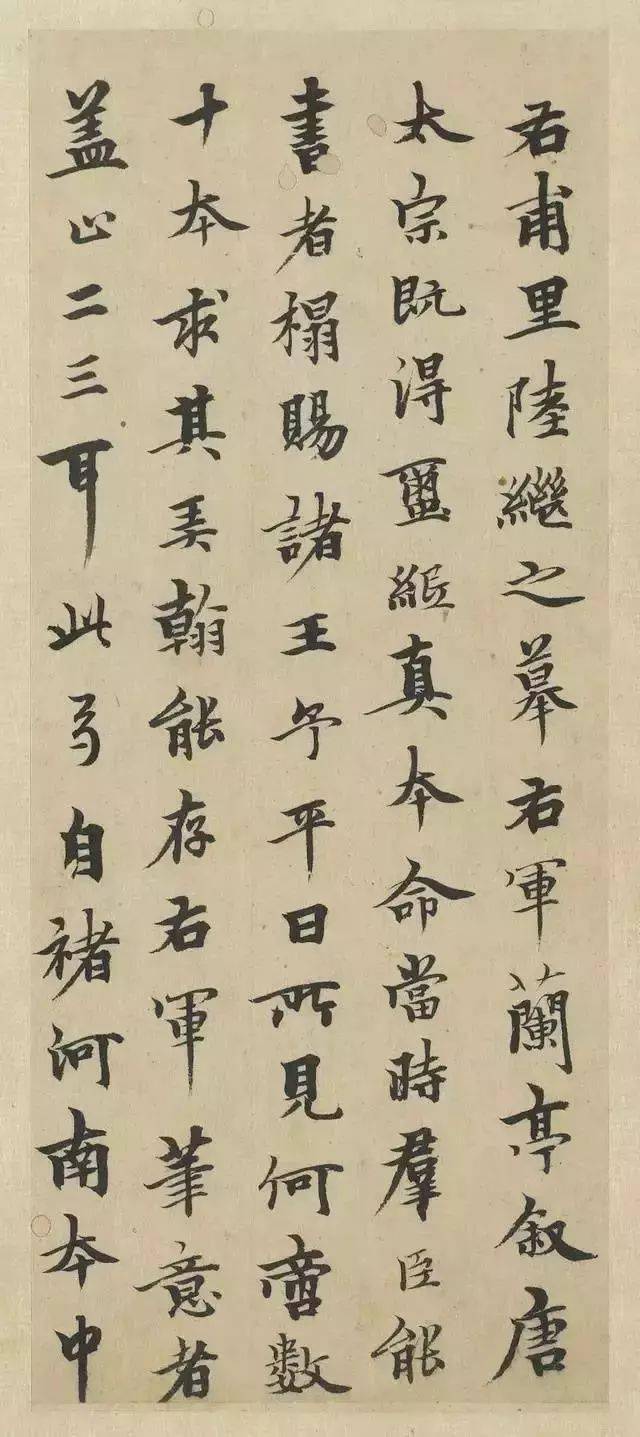 右甫里陸繼之摹右軍蘭亭叙唐
太宗既得璽紙真本命當時羣臣能
書者榻賜諸王予平日所見何啻數
十本求其弄翰能存右軍筆意者
盖止二三耳此弓自褚河南本中